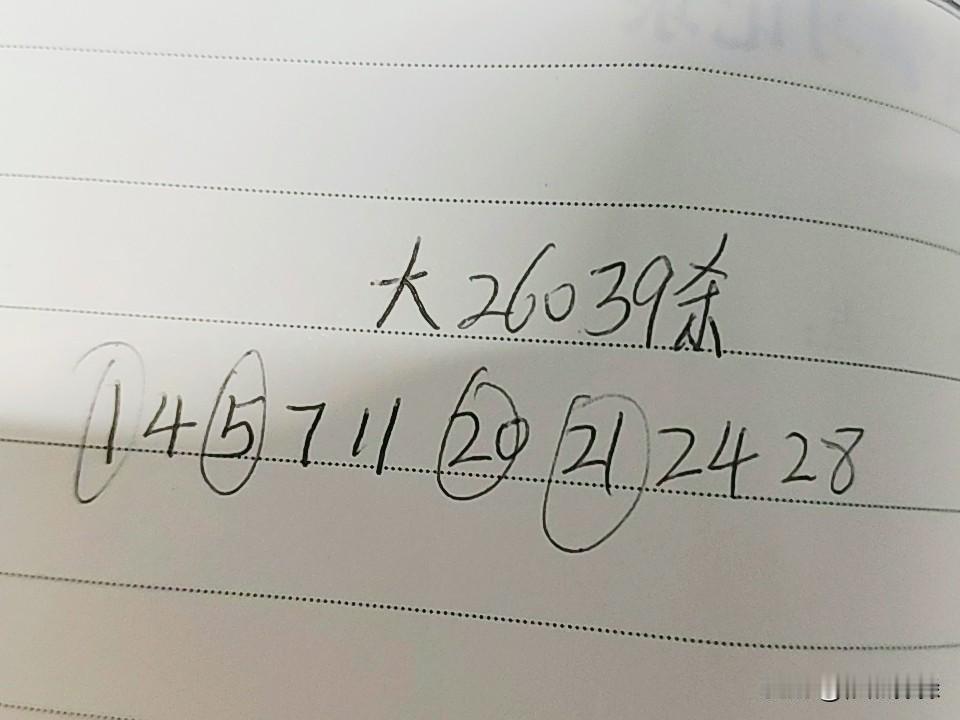 大26039杀
1 4 5 7 11 20 21 24 28